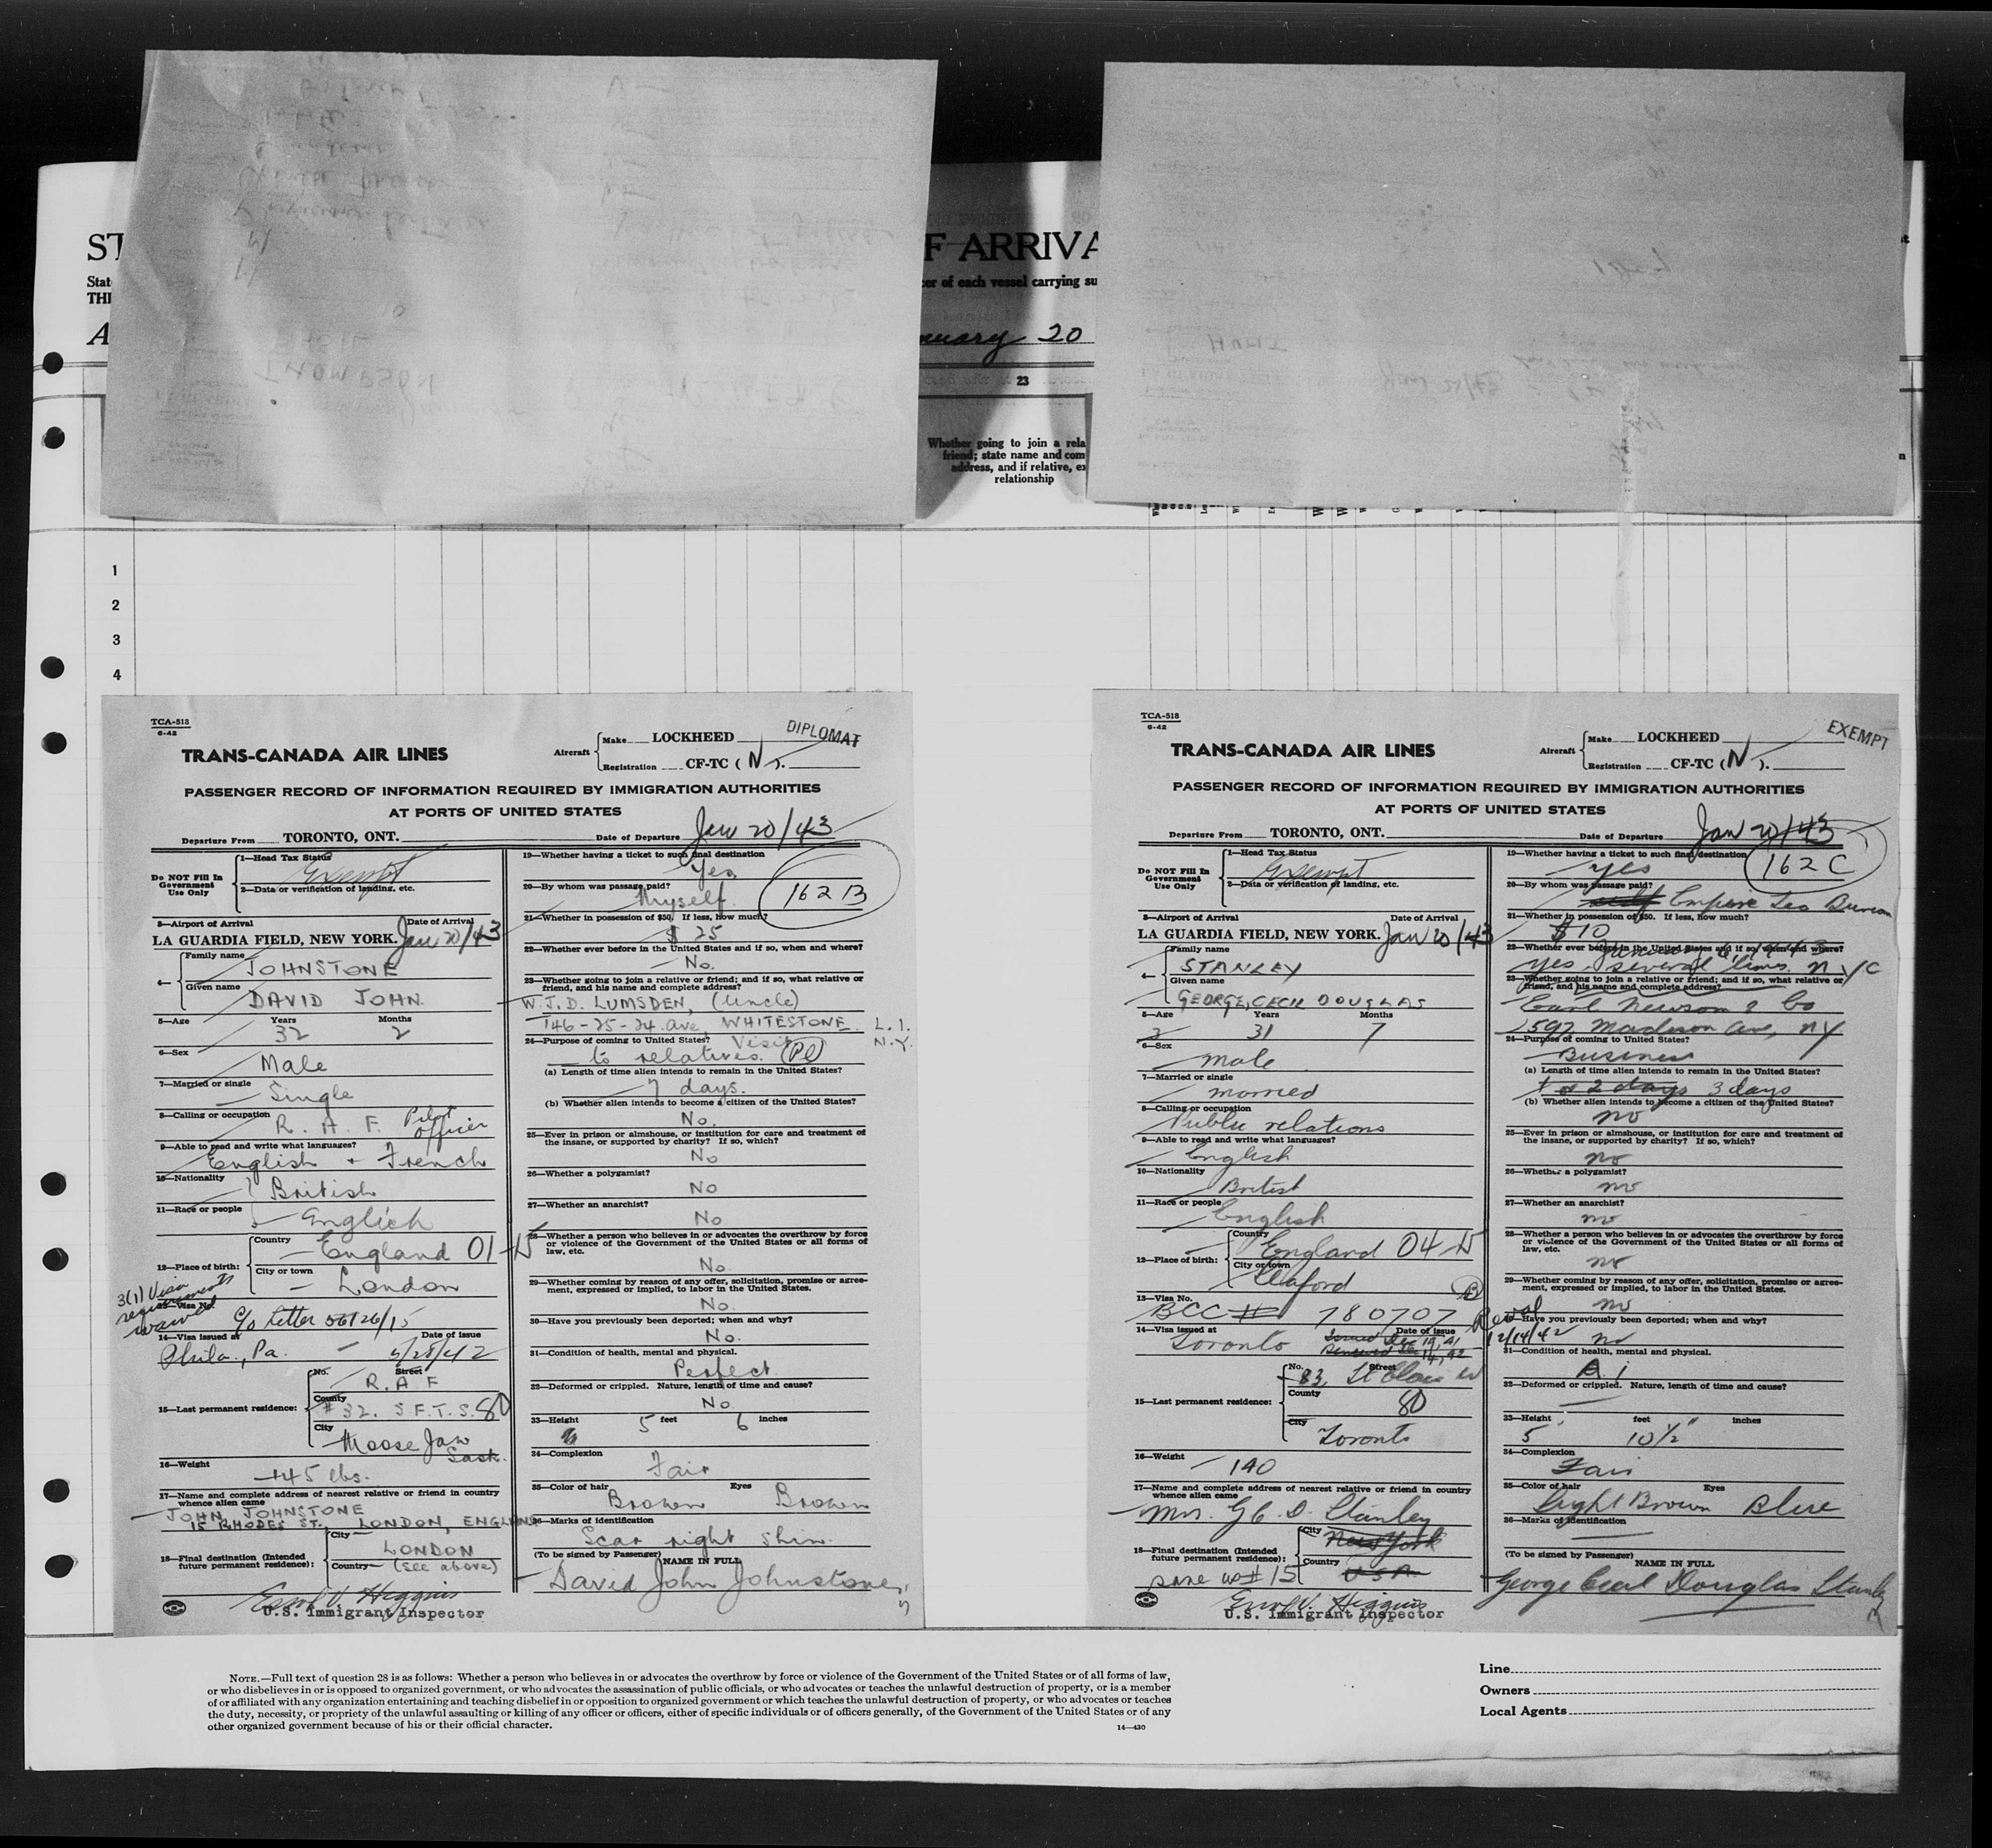 F ARRIVA
er of each vessel carrying su
nuary 20
23
Whether going to join a rela
friend; state name and com
address, and if relative, ex
relationship
1
2
3
4
TCA-518
6-42
TRANS-CANADA AIR LINES
Aircraft Make LOCKHEED
Registration CF-TC (N).
DIPLOMAT
PASSENGER RECORD OF INFORMATION REQUIRED BY IMMIGRATION AUTHORITIES
AT PORTS OF UNITED STATES
Departure From TORONTO, ONT. Date of Departure Jan 20/43
Do NOT Fill In
Government
Use Only
1—Head Tax Status
Exempt
2—Data or verification of landing, etc.
3—Airport of Arrival Date of Arrival
LA GUARDIA FIELD, NEW YORK. Jan 20/43
4— Family name
JOHNSTONE
Given name
DAVID JOHN.
5—Age Years Months
32 2
6—Sex
Male
7—Married or single
Single
8—Calling or occupation
R. A. F. Pilot officer
9—Able to read and write what languages?
English + French
10—Nationality
British
11—Race or people
English
12—Place of birth: Country
England 01-N
City or town
London
3(1) Visa
requirements
waived
13—Visa No.
c/o Letter 56126/15
14—Visa issued at Date of issue
Phila., Pa. 5/28/42
15—Last permanent residence: No. Street
R. A F
County
#32. S F. T. S. 80
City
Moose Jaw
Sask.
16—Weight
145 lbs.
17—Name and complete address of nearest relative or friend in country
whence alien came
JOHN JOHNSTONE
15 RHODES ST., LONDON, ENGLAND
18—Final destination (Intended
future permanent residence):
City
LONDON
Country (see above)
U.S. Immigrant Inspector
19—Whether having a ticket to such final destination
Yes.
162 B
20—By whom was passage paid?
Myself.
21—Whether in possession of $50. If less, how much?
$ 25
22—Whether ever before in the United States and if so, when and where?
No.
23—Whether going to join a relative or friend; and if so, what relative or
friend, and his name and complete address?
W. J. D. LUMSDEN, (Uncle)
146-25-24 ave, WHITESTONE. L. I.
N.Y.
24—Purpose of coming to United States? Visit
to relatives.
(a) Length of time alien intends to remain in the United States?
7 days.
(b) Whether alien intends to become a citizen of the United States?
No.
25—Ever in prison or almshouse, or institution for care and treatment of
the insane, or supported by charity? If so, which?
No
26—Whether a polygamist?
No
27—Whether an anarchist?
No
28—Whether a person who believes in or advocates the overthrow by force
or violence of the Government of the United States or all forms of
law, etc.
No.
29—Whether coming by reason of any offer, solicitation, promise or agree-
ment, expressed or implied, to labor in the United States.
No.
30—Have you previously been deported; when and why?
No.
31—Condition of health, mental and physical.
Perfect
32—Deformed or crippled. Nature, length of time and cause?
No.
33—Height
5 feet 6 inches
34—Complexion
Fair
35—Color of hair Eyes
Brown Brown
36—Marks of identification
Scar right shin.
(To be signed by Passenger) NAME IN FULL
David John Johnstone,
TCA-518
6-42
TRANS-CANADA AIR LINES
Aircraft Make LOCKHEED
Registration CF-TC (N).
EXEMPT
PASSENGER RECORD OF INFORMATION REQUIRED BY IMMIGRATION AUTHORITIES
AT PORTS OF UNITED STATES
Departure From TORONTO, ONT. Date of Departure Jan 20/43
Do NOT Fill In
Government
Use Only
1—Head Tax Status
Exempt
2—Data or verification of landing, etc.
3—Airport of Arrival Date of Arrival
LA GUARDIA FIELD, NEW YORK. Jan 20/43
4— Family name
STANLEY
Given name
GEORGE, CECIL DOUGLAS
5—Age Years Months
31 7
6—Sex
male
7—Married or single
married
8—Calling or occupation
Public relations
9—Able to read and write what languages?
English
10—Nationality
British
11—Race or people
English
12—Place of birth: Country
England 04-N
City or town
Seaford
13—Visa No.
BCC # 780707
14—Visa issued at Date of issue
Toronto
12/14/42
15—Last permanent residence: No. Street
83, St Clair W
County
80
City
Toronto
16—Weight
140
17—Name and complete address of nearest relative or friend in country
whence alien came
Mrs. G C. D. Stanley
18—Final destination (Intended
future permanent residence):
City
New York
Country
U S A
same as # 15
U.S. Immigrant Inspector
19—Whether having a ticket to such final destination
yes
162 C
20—By whom was passage paid?
self Empire
21—Whether in possession of $50. If less, how much?
$10
22—Whether ever before in the United States and if so, when and where?
yes several times. N Y C
23—Whether going to join a relative or friend; and if so, what relative or
friend, and his name and complete address?
Earl Newsom & Co
597 Madison Ave, NY
24—Purpose of coming to United States?
Business
(a) Length of time alien intends to remain in the United States?
1 or 2 days 3 days
(b) Whether alien intends to become a citizen of the United States?
no
25—Ever in prison or almshouse, or institution for care and treatment of
the insane, or supported by charity? If so, which?
no
26—Whether a polygamist?
no
27—Whether an anarchist?
no
28—Whether a person who believes in or advocates the overthrow by force
or violence of the Government of the United States or all forms of
law, etc.
no
29—Whether coming by reason of any offer, solicitation, promise or agree-
ment, expressed or implied, to labor in the United States.
no
30—Have you previously been deported; when and why?
no
31—Condition of health, mental and physical.
A. 1
32—Deformed or crippled. Nature, length of time and cause?
33—Height feet inches
5 10 1/2"
34—Complexion
Fair
35—Color of hair Eyes
Light Brown Blue
36—Marks of identification
(To be signed by Passenger) NAME IN FULL
George Cecil Douglas Stanley
NOTE.—Full text of question 28 is as follows: Whether a person who believes in or advocates the overthrow by force or violence of the Government of the United States or of all forms of law,
or who disbelieves in or is opposed to organized government, or who advocates the assassination of public officials, or who advocates or teaches the unlawful destruction of property, or is a member
of or affiliated with any organization entertaining and teaching disbelief in or opposition to organized government or which teaches the unlawful destruction of property, or who advocates or teaches
the duty, necessity, or propriety of the unlawful assaulting or killing of any officer or officers, either of specific individuals or of officers generally, of the Government of the United States or of any
other organized government because of his or their official character.
14—430
Line
Owners
Local Agents